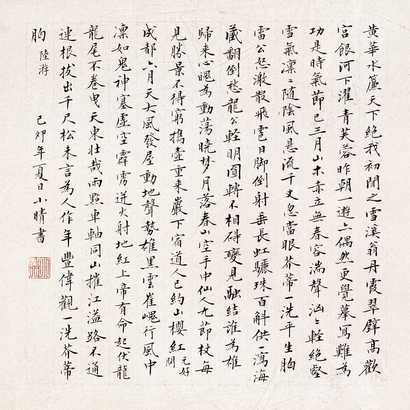 黄華水簾天下絕我初聞之雪溪翁丹霞翠壁高歡
宮銀河下濯青芙蓉昨朝一遊亦偶然更覺摹寫難為
功是時氣節已三月山木赤立無春容湍聲洶洶轉絕壑
雪氣凜凜隨陰風懸流千丈忽當眼芥蒂一洗平生胸
雷公怒激散飛雹日脚倒射垂長虹驪珠百斛供一瀉海
藏翻倒愁龍公輕明圓轉不相礙變見融結誰為雄
歸來心魄為動蕩曉夢月落春山空手中仙人九節杖每
見勝景不得窮攜壺重來巖下宿道人已約山櫻紅 元好問
成都六月天大風發屋動地聲勢雄黑雲崔嵬行風中
凜如鬼神塞虛空霹靂迸火射地紅上帝有命起伏龍
龍尾不卷曳天東壯哉雨點車軸同山摧江溢路不通
連根拔出千尺松未言為人作年豐偉觀一洗芥蒂
胸 陸游
己卯年夏日小晴書